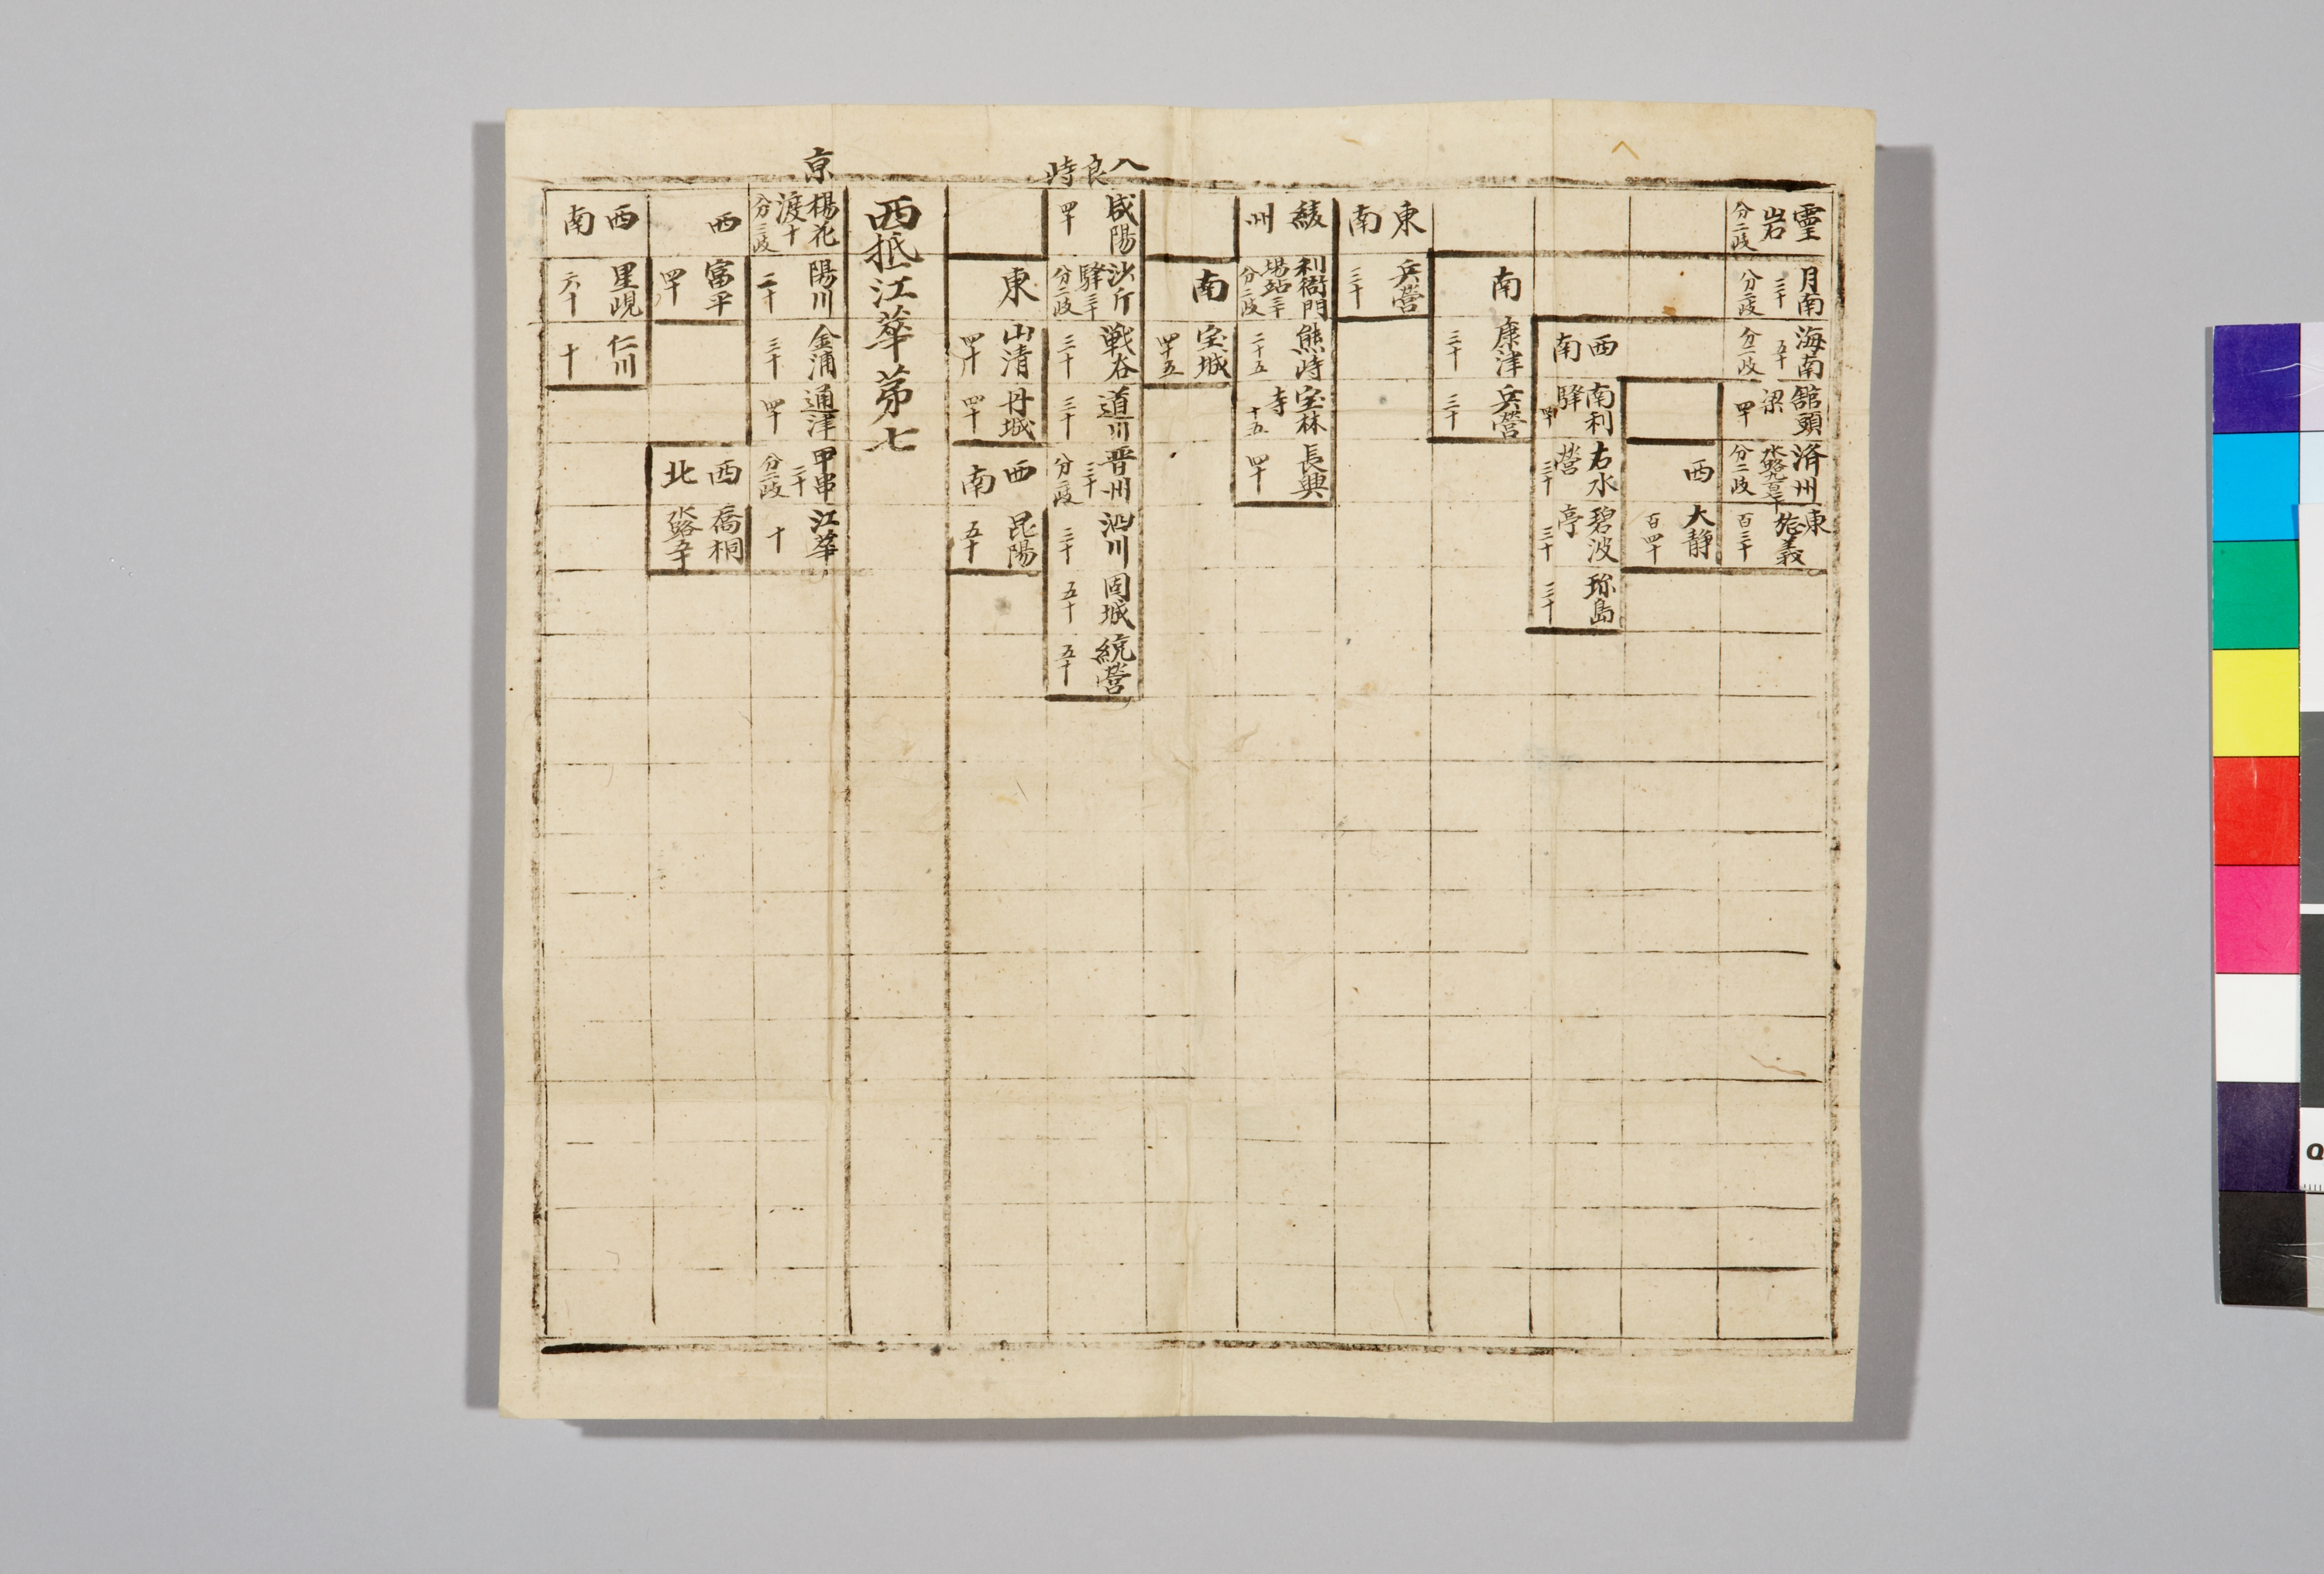 靈岩 分二歧
月南 三十 分二歧
海南 五十 分二歧
舘頭梁 四十
済州 水路九百七十 分二歧
東 旌義 百三十
西
大静 百四十
西南
南利驛 四十
右水營 三十
碧波亭 三十
珎島 三十
南
康津 三十
兵營 三十
東南
兵營 三十
綾州
利衙門場站 三十 分二歧
熊峙 二十五
宝林寺 十五
長興 四十
南
宝城 四十五
八良峙
咸陽 四十
沙斤驛 三十 分二歧
戦谷 三十
道川 三十
晋州 三十 分二歧
泗川 三十
固城 五十
統營 五十
東
山清 四十
丹城 四十
西南
昆陽 五十
西抵江華 苐七
京
楊花渡 十 分三歧
陽川 二十
金浦 三十
通津 四十
甲串 三十 分二歧
江華 十
西
富平 四十
西北
喬桐 水路五十
西南
星峴 六十
仁川 十